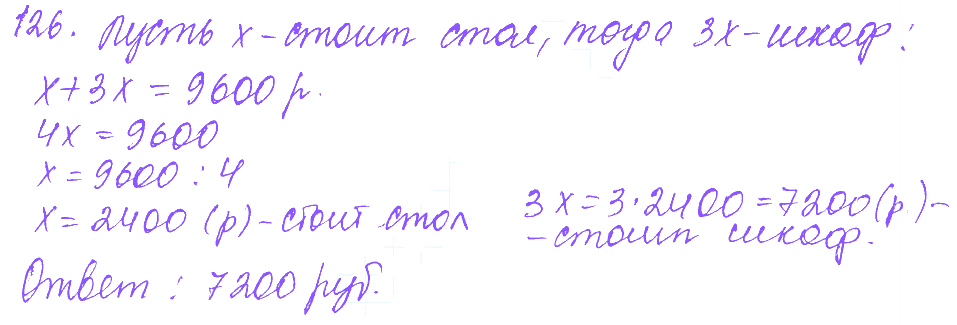 126. Пусть х - стоит стол, тогда 3х - шкаф:
х + 3х = 9600 р.
4х = 9600
х = 9600 : 4
х = 2400 (р) - стоит стол
3х = 3 · 2400 = 7200 (р) -
- стоит шкаф.
Ответ : 7200 руб.